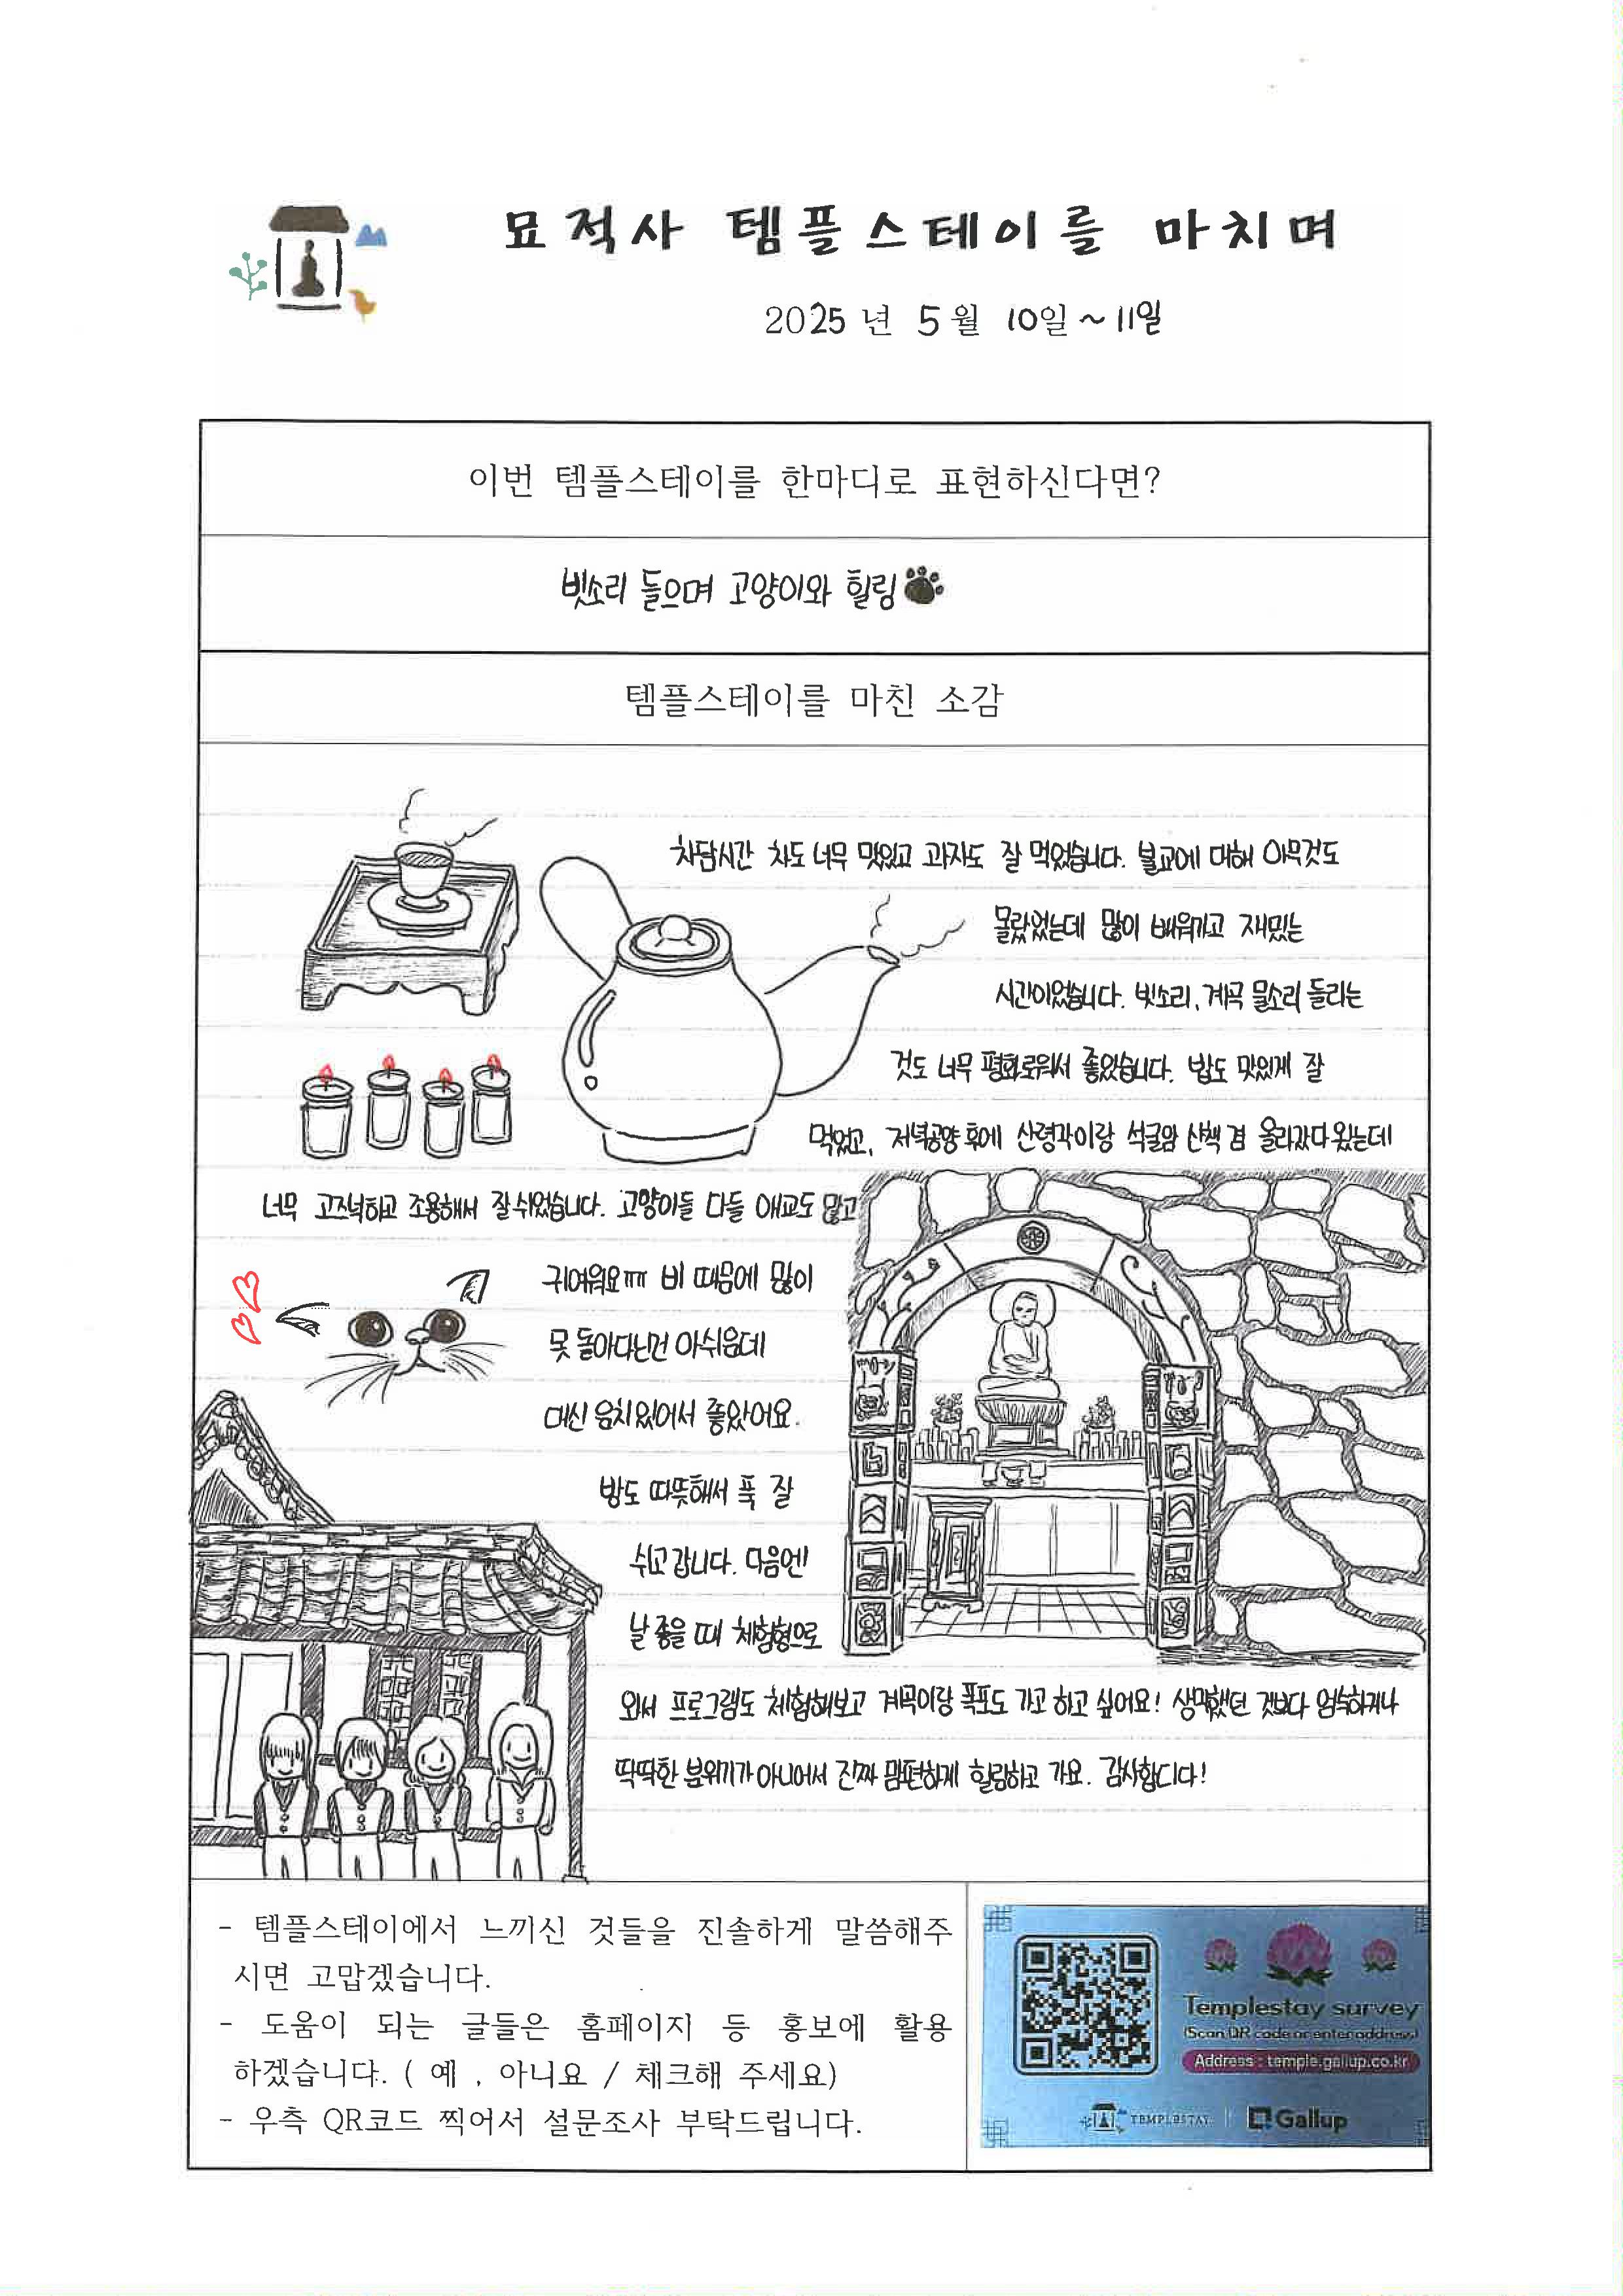 묘적사 템플스테이를 마치며
2025 년 5 월 10일 ~ 11일
이번 템플스테이를 한마디로 표현하신다면?
빗소리 들으며 고양이와 힐링
템플스테이를 마친 소감
차담시간 차도 너무 맛있고 과자도 잘 먹었습니다. 불교에 대해 아무것도
몰랐었는데 많이 배워가고 재밌는
시간이었습니다. 빗소리, 계곡 물소리 들리는
것도 너무 평화로워서 좋았습니다. 밥도 맛있게 잘
먹었고, 저녁공양 후에 산령각이랑 석굴암 산책 겸 올라갔다 왔는데
너무 고즈넉하고 조용해서 잘 쉬었습니다. 고양이들 다들 애교도 많고
귀여워요ㅠㅠ 비 때문에 많이
못 돌아다닌건 아쉬운데
대신 운치있어서 좋았어요.
방도 따뜻해서 푹 잘
쉬고 갑니다. 다음엔
날 좋을 때 체험형으로
와서 프로그램도 체험해보고 계곡이랑 폭포도 가고 하고 싶어요! 생각했던 것보다 엄숙하거나
딱딱한 분위기가 아니어서 진짜 맘편하게 힐링하고 가요. 감사합니다!
- 템플스테이에서 느끼신 것들을 진솔하게 말씀해주
시면 고맙겠습니다.
- 도움이 되는 글들은 홈페이지 등 홍보에 활용
하겠습니다. ( 예 , 아니요 / 체크해 주세요)
- 우측 QR코드 찍어서 설문조사 부탁드립니다.
Templestay survey
(Scan QR code or enter address)
Address : temple.gallup.co.kr
TEMPLESTAY
Gallup